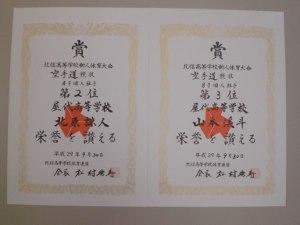 賞
北信高等学校新人体育大会
空手道競技
男子個人組手
第2位
屋代高等学校
北原
栄誉を讃える
平成29年9月30日
北信高等学校体育連盟
会長
賞
北信高等学校新人体育大会
空手道競技
男子個人組手
第3位
屋代高等学校
山本
栄誉を讃える
平成29年9月30日
北信高等学校体育連盟
会長